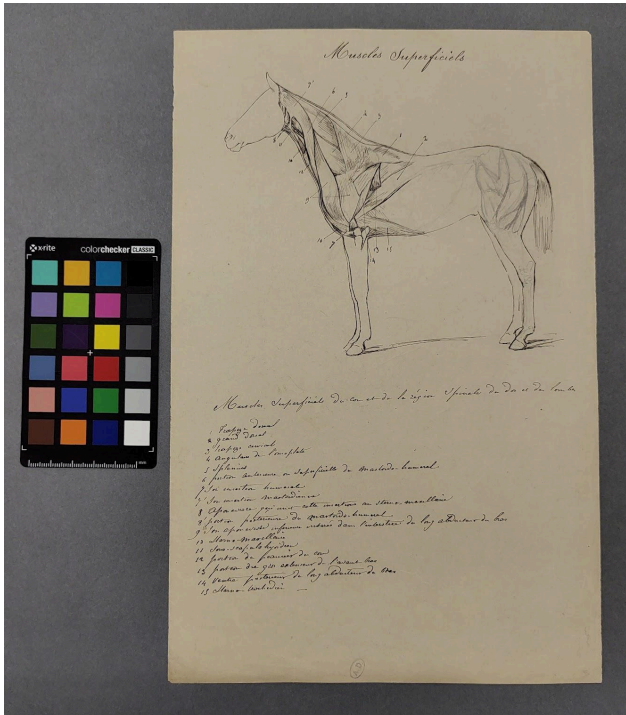 Muscles Superficiels
x-rite colorchecker CLASSIC
Muscles Superficiels du cou et de la région Spinale du dos et des lombes
1 Trapèze dorsal
2 grand dorsal
3 Trapèze cervical
4 angulaire de l'omoplate
5 Splenius
6 portion antérieure ou superficielle du mastoido-huméral
7 Son insertion humérale
7' Son insertion mastoidienne
8 Aponévrose qui unit cette insertion au sterno-maxillaire
9 portion postérieure du mastoido-huméral
9' Son aponévrose inférieure insérée dans l'interstice du long abducteur du bras
10 Sterno-maxillaire
11 Sous-scapulo hyoidien
12 portion du peaucier du cou
13 portion du gros extenseur de l'avant bras
14 Ventre postérieur du long abducteur du bras
15 Sterno-
2